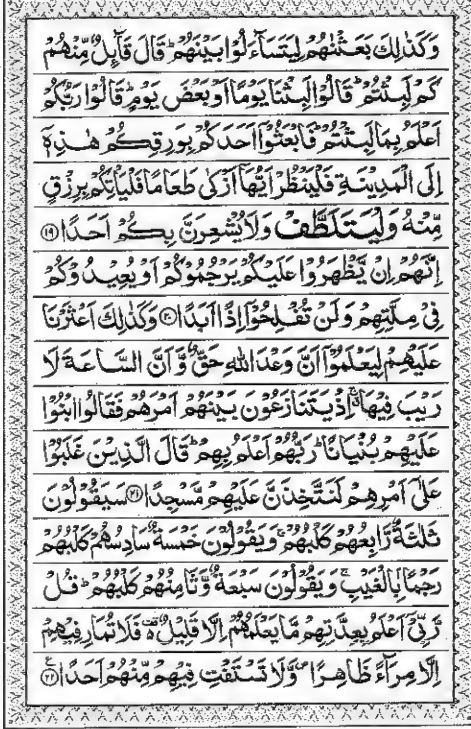 وَكَذٰلِكَ بَعَثْنٰهُمْ لِيَتَسَآءَلُوْا بَيْنَهُمْ ؕ قَالَ قَآئِلٌ مِّنْهُمْ
كَمْ لَبِثْتُمْ ؕ قَالُوْا لَبِثْنَا يَوْمًا اَوْ بَعْضَ يَوْمٍ ؕ قَالُوْا رَبُّكُمْ
اَعْلَمُ بِمَا لَبِثْتُمْ ؕ فَابْعَثُوْۤا اَحَدَكُمْ بِوَرِقِكُمْ هٰذِهٖۤ
اِلَى الْمَدِيْنَةِ فَلْيَنْظُرْ اَيُّهَاۤ اَزْكٰى طَعَامًا فَلْيَاْتِكُمْ بِرِزْقٍ
مِّنْهُ وَلْيَتَلَطَّفْ وَلَا يُشْعِرَنَّ بِكُمْ اَحَدًا ﴿۱۹﴾
اِنَّهُمْ اِنْ يَّظْهَرُوْا عَلَيْكُمْ يَرْجُمُوْكُمْ اَوْ يُعِيْدُوْكُمْ
فِيْ مِلَّتِهِمْ وَلَنْ تُفْلِحُوْۤا اِذًا اَبَدًا ﴿۲۰﴾ وَكَذٰلِكَ اَعْثَرْنَا
عَلَيْهِمْ لِيَعْلَمُوْۤا اَنَّ وَعْدَ اللّٰهِ حَقٌّ وَّاَنَّ السَّاعَةَ لَا
رَيْبَ فِيْهَا ۚ اِذْ يَتَنَازَعُوْنَ بَيْنَهُمْ اَمْرَهُمْ فَقَالُوا ابْنُوْا
عَلَيْهِمْ بُنْيَانًا ؕ رَبُّهُمْ اَعْلَمُ بِهِمْ ؕ قَالَ الَّذِيْنَ غَلَبُوْا
عَلٰۤى اَمْرِهِمْ لَنَتَّخِذَنَّ عَلَيْهِمْ مَّسْجِدًا ﴿۲۱﴾ سَيَقُوْلُوْنَ
ثَلٰثَةٌ رَّابِعُهُمْ كَلْبُهُمْ ۚ وَيَقُوْلُوْنَ خَمْسَةٌ سَادِسُهُمْ كَلْبُهُمْ
رَجْمًا بِالْغَيْبِ ۚ وَيَقُوْلُوْنَ سَبْعَةٌ وَّثَامِنُهُمْ كَلْبُهُمْ ؕ قُلْ
رَّبِّيْۤ اَعْلَمُ بِعِدَّتِهِمْ مَّا يَعْلَمُهُمْ اِلَّا قَلِيْلٌ ۫ فَلَا تُمَارِ فِيْهِمْ
اِلَّا مِرَآءً ظَاهِرًا ۪ وَّلَا تَسْتَفْتِ فِيْهِمْ مِّنْهُمْ اَحَدًا ﴿۲۲﴾